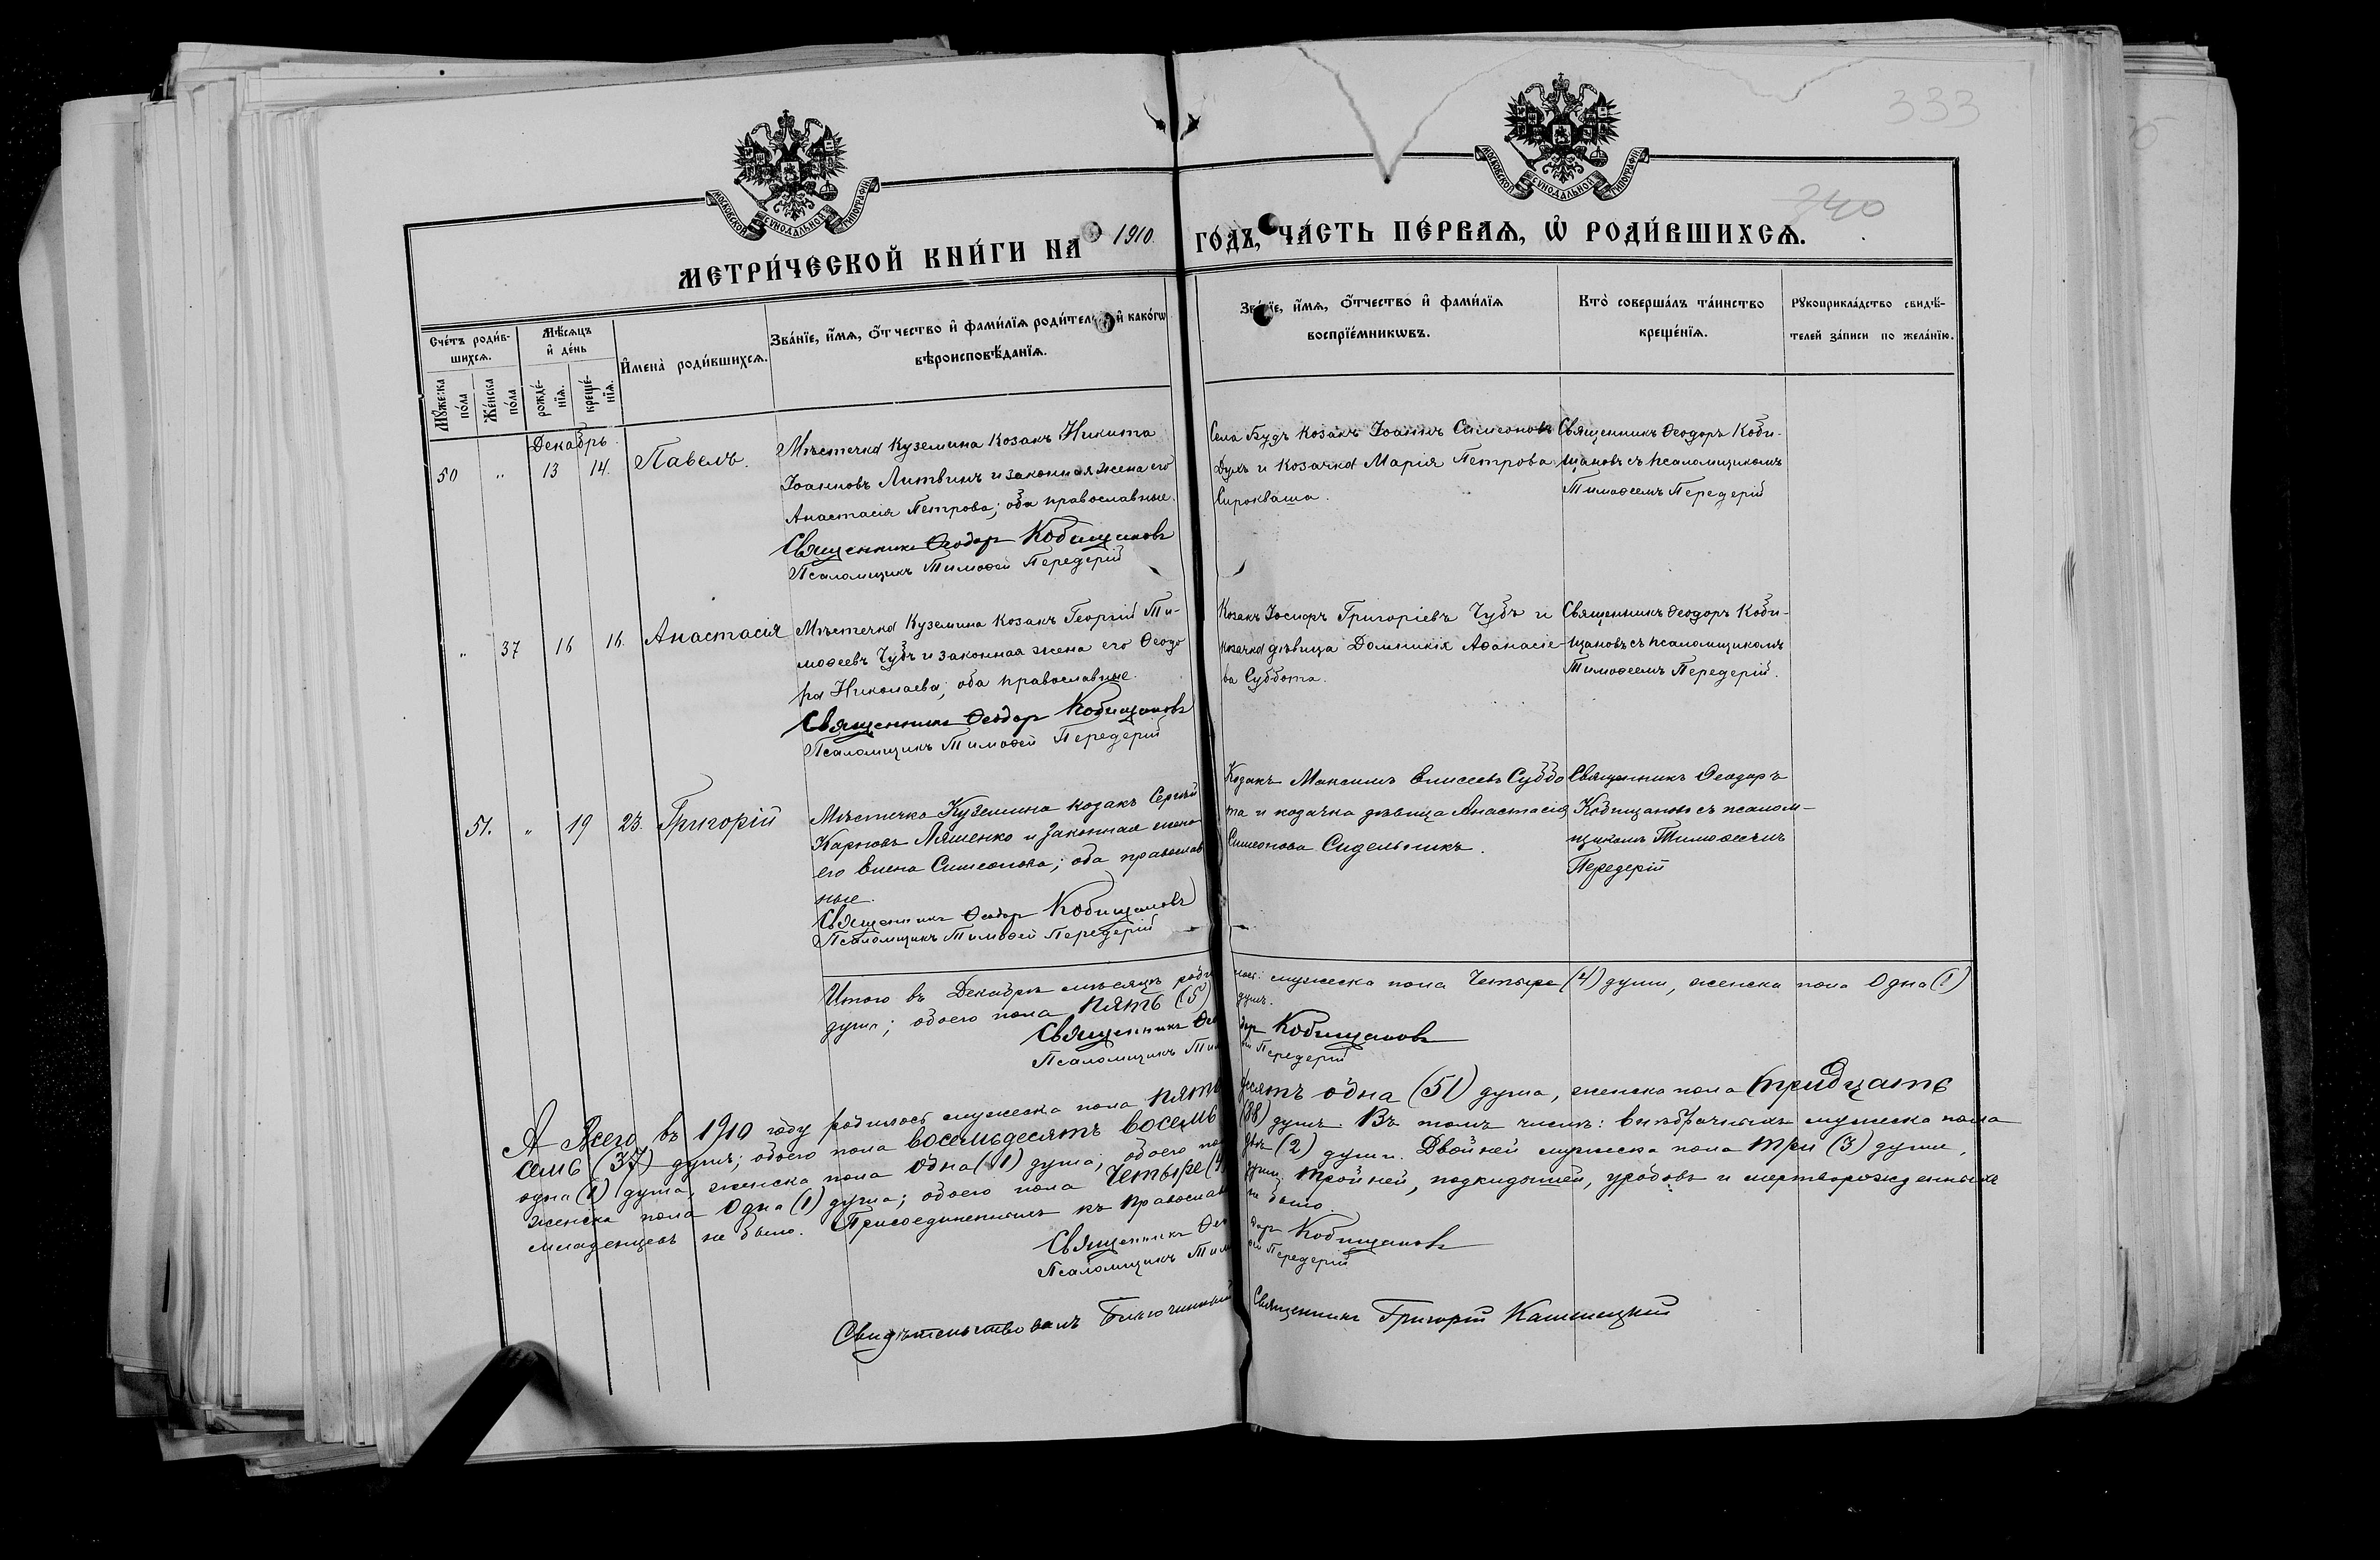 333
340
МОСКОВСКОЙ СѴНОДАЛЬНОЙ ТИПОГРАФІИ
МОСКОВСКОЙ СѴНОДАЛЬНОЙ ТИПОГРАФІИ
МЕТРИ́ЧЕСКОЙ КНИ́ГИ НА 1910 ГО́ДЪ, ЧА́СТЬ ПЕ́РВАѦ, Ѡ РОДИ́ВШИХСѦ.
Сче́тъ роди́в-
шихсѧ.
Мꙋ́жеска по́ла
Же́нска по́ла
Мѣ́сѧцъ
и҆ де́нь
рожде́-
нїѧ.
креще́-
нїѧ.
И҆мена̀ роди́вшихсѧ.
Зва́нїе, и҆́мѧ, ѻ҆́тчество и҆ фами́лїѧ роди́тел и҆ како́гѡ
вѣроисповѣ́данїѧ.
Зва́нїе, и҆́мѧ, ѻ҆́тчество и҆ фами́лїѧ
воспрїе́мникѡвъ.
Кто̀ соверша́лъ та́инство
креще́нїѧ.
Рꙋкоприкла́дство свидѣ́-
телей за́писи по жела́нїю.
Декабрь
50 " 13 14. Павелъ.
Мѣстечка Куземина козакъ Никита
Іоанновъ Литвинъ и законная жена его
Анастасія Петрова; оба православные.
Священникъ Ѳеодоръ Кобищановъ
Псаломщикъ Тимоѳей Передерій
Села Будъ козакъ Іоаннъ Симеоновъ
Дуль и козачка Марія Петрова
Сирокваша.
Священникъ Ѳеодоръ Коби-
щановъ съ псаломщикомъ
Тимоѳеемъ Передерій
" 37 16 16. Анастасія
Мѣстечка Куземина козакъ Георгій Ти-
моѳеевъ Чубъ и законная жена его Ѳеодо
ра Николаева; оба православные.
Священникъ Ѳеодоръ Кобищановъ
Псаломщикъ Тимоѳей Передерій
Козакъ Іосифъ Григоріевъ Чубъ и
козачка дѣвица Домникія Аѳанасіе-
ва Суббота.
Священникъ Ѳеодоръ Коби-
щановъ съ псаломщикомъ
Тимоѳеемъ Передерій.
51. " 19 23. Григорій
Мѣстечка Куземина козакъ Сергій
Карповъ Ляшенко и законная жена
его Елена Симеонова; оба православ
ные.
Священникъ Ѳеодоръ Кобищановъ
Псаломщикъ Тимоѳей Передерій
Козакъ Максимъ Елисеевъ Суббо
та и козачка дѣвица Анастасія
Симеонова Сидельникъ.
Священникъ Ѳеодоръ
Кобищановъ съ псалом-
щикомъ Тимоѳеемъ
Передерій
Итого въ Декабрѣ мѣсяцѣ роди лось: мужеска пола Четыре (4) души, женска пола Одна (1)
душа; обоего пола Пять (5) душъ.
Священникъ Ѳео доръ Кобищановъ
Псаломщикъ Тимоѳ ей Передерій
А Всего въ 1910 году родилось мужеска пола Пять десятъ одна (51) душа, женска пола тридцать
семь (37) душъ; обоего пола восемьдесятъ восемь (88) душъ. Въ томъ числѣ: внѣбрачныхъ мужеска пола
одна (1) душа, женска пола одна (1) душа; обоего пола двѣ (2) души. Двойней мужеска пола три (3) души,
женска пола Одна (1) душа; обоего пола Четыре (4) души, тройней, подкидышей, уродовъ и мертворожденныхъ
младенцевъ не было. Присоединенныхъ къ православ не было.
Священникъ Ѳео доръ Кобищановъ
Псаломщикъ Тимоѳ ей Передерій
Свидѣтельствовалъ Священникъ Григорій